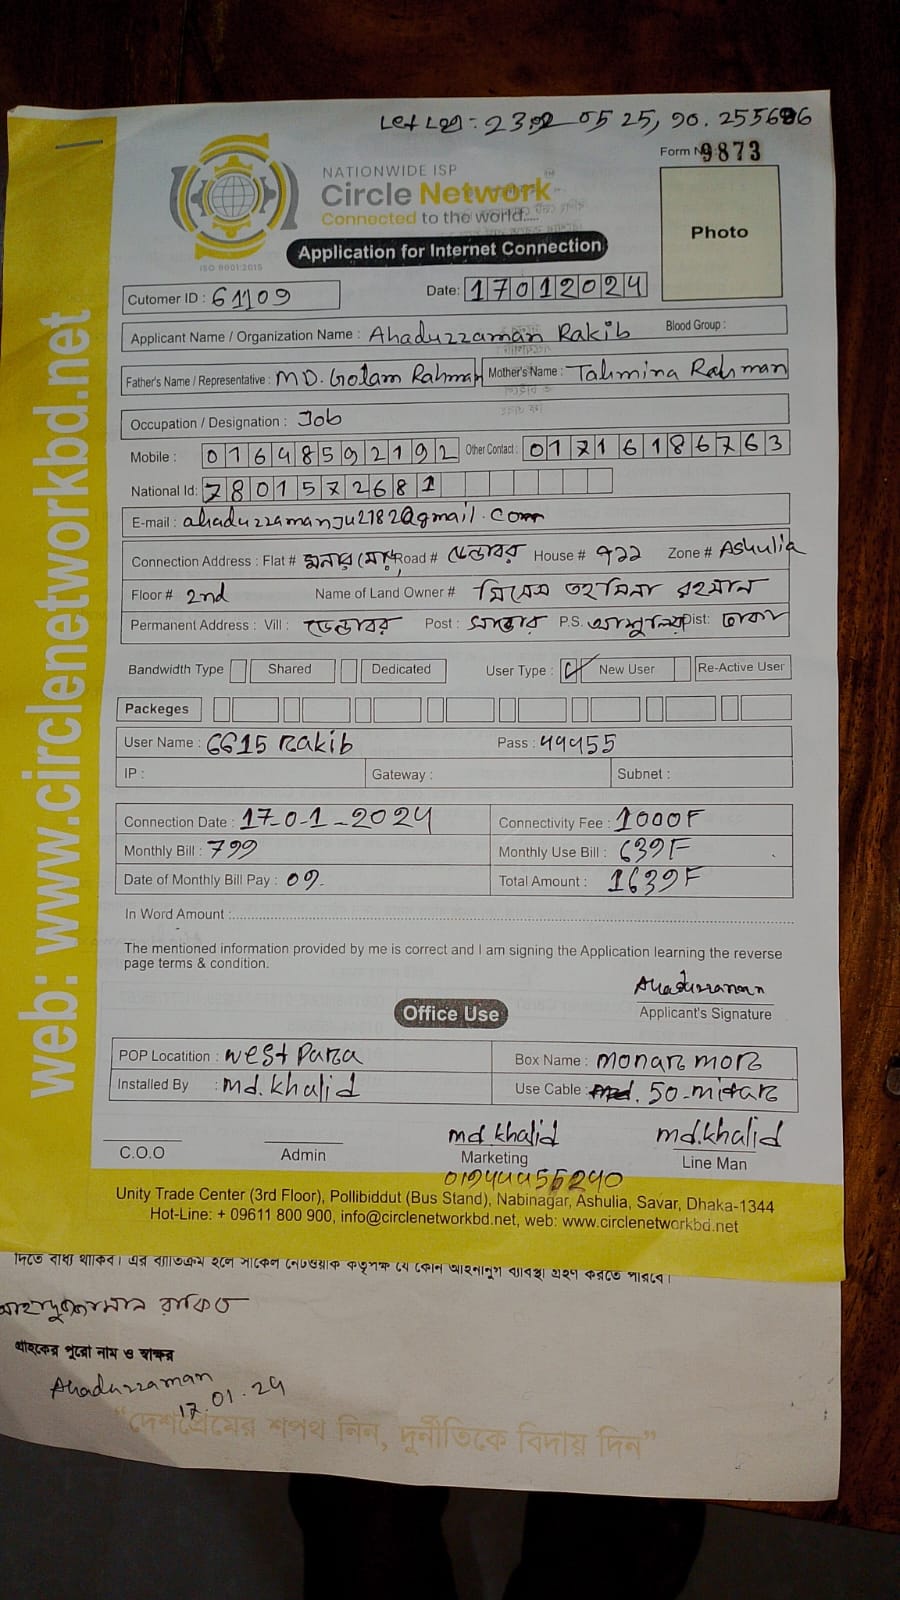 Let Log: 23.2 0525, 90. 255686
Form No 9873
NATIONWIDE ISP
Circle Network™
Connected to the world.....
ISO 9001:2015
Application for Internet Connection
Photo
Cutomer ID : 61109
Date: 17012024
Applicant Name / Organization Name : Ahaduzzaman Rakib Blood Group :
Father's Name / Representative : MD. Golam Rahman Mother's Name : Tahmina Rahman
Occupation / Designation : Job
Mobile : 01648592192 Other Contact : 01716186763
National Id: 7801572681
E-mail : ahaduzzamanju2182@gmail.com
Connection Address : Flat # মনার মোড় Road # ডেন্ডাবর House # ৭২২ Zone # Ashulia
Floor # 2nd Name of Land Owner # মিসেস তহমিনা রহমান
Permanent Address : Vill : ডেন্ডাবর Post : সাভার P.S. আশুলিয়া Dist: ঢাকা
Bandwidth Type Shared Dedicated User Type : New User Re-Active User
Packeges
User Name : 6615 Rakib Pass : 44455
IP : Gateway : Subnet :
Connection Date : 17-01-2024 Connectivity Fee : 1000F
Monthly Bill : 799 Monthly Use Bill : 639F
Date of Monthly Bill Pay : 09. Total Amount : 1639F
In Word Amount :
The mentioned information provided by me is correct and I am signing the Application learning the reverse
page terms & condition.
Ahaduzzaman
Applicant's Signature
Office Use
POP Locatition : west para Box Name : monar mor
Installed By : md. khalid Use Cable : 50-mitar
md khalid md.khalid
C.O.O Admin Marketing Line Man
Unity Trade Center (3rd Floor), Pollibiddut (Bus Stand), Nabinagar, Ashulia, Savar, Dhaka-1344
Hot-Line: + 09611 800 900, info@circlenetworkbd.net, web: www.circlenetworkbd.net
web: www.circlenetworkbd.net
দিতে বাধ্য থাকিব। এর ব্যতিক্রম হলে সার্কেল নেটওয়ার্ক কর্তৃপক্ষ যে কোন আইনানুগ ব্যবস্থা গ্রহণ করতে পারবে।
আহাদুজ্জামান রাকিব
গ্রাহকের পুরো নাম ও স্বাক্ষর
Ahaduzzaman
17.01.24
“দেশপ্রেমের শপথ নিন, দুর্নীতিকে বিদায় দিন”